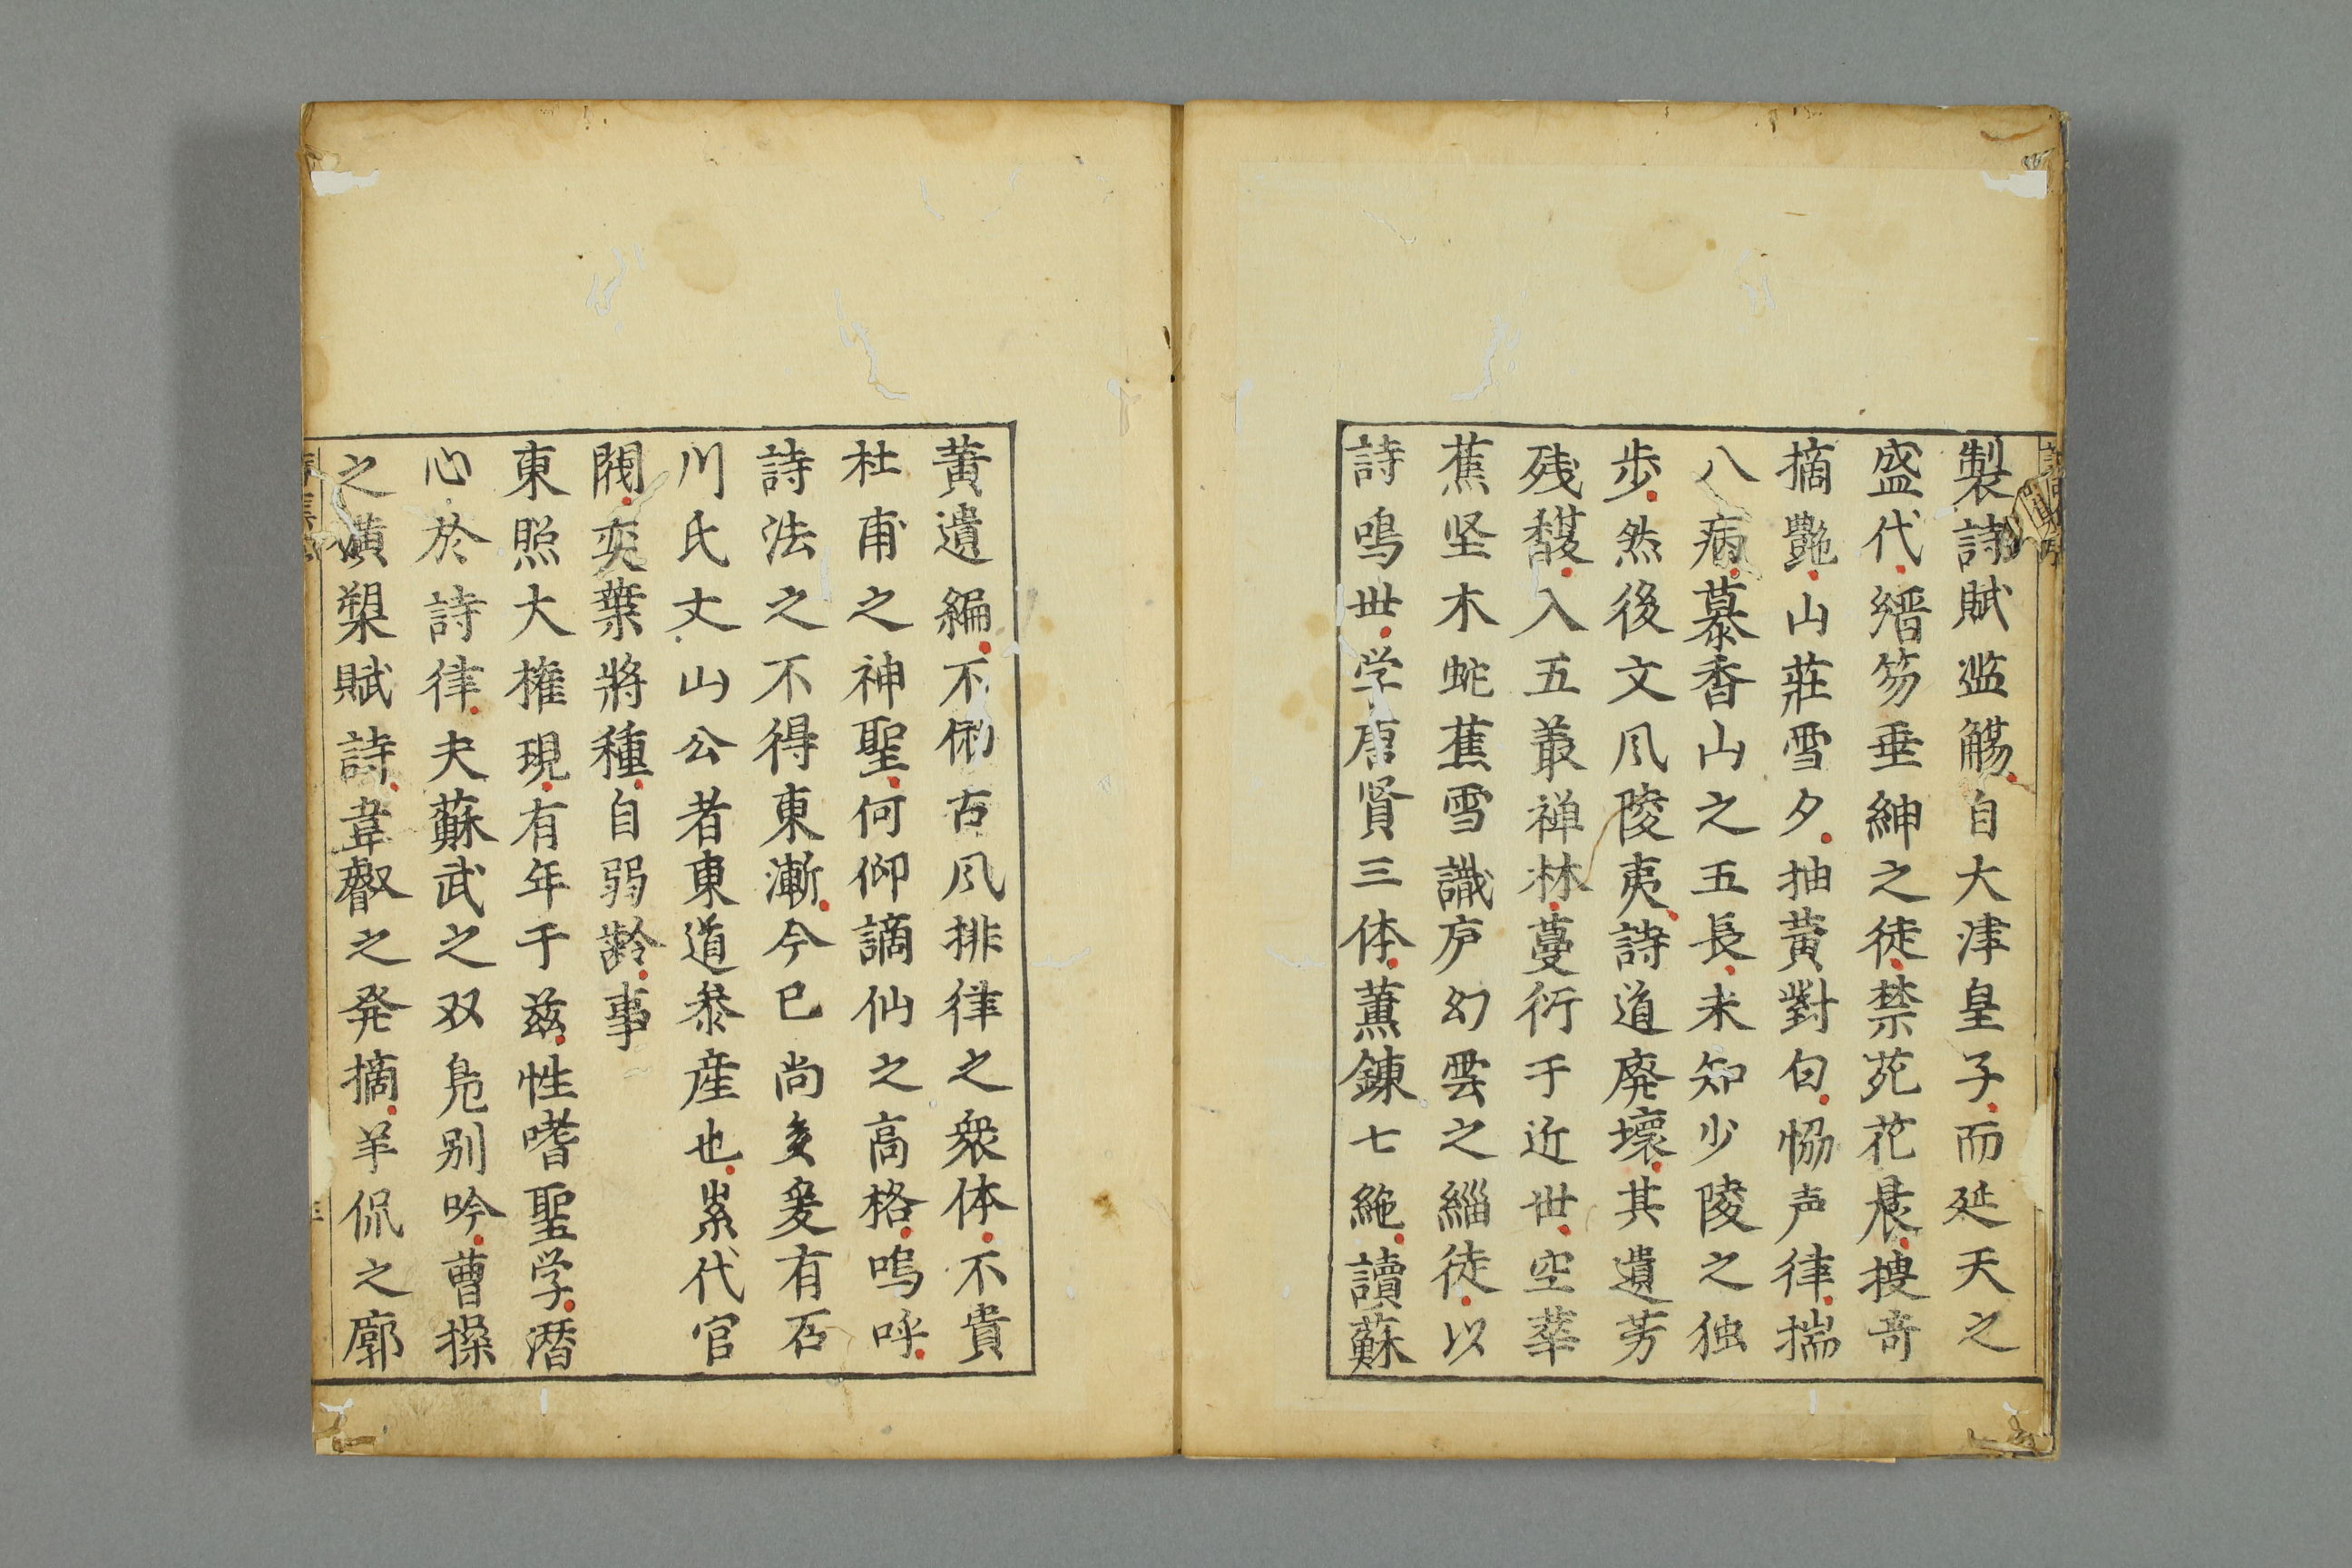 製詩賦濫觴自大津皇子而延天之
盛代縉笏垂紳之徒禁苑花晨搜奇
摘艷山莊雪夕抽黄對白恊声律揣
八病慕香山之五長未知少陵之独
歩然後文风陵夷詩道廃壞其遺芳
残馥入五叢禅林蔓衍于近世空華
蕉坚木蛇蕉雪識庐幻雲之緇徒以
詩鳴世学唐賢三体薫錬七絶讀蘇
黄遺編不俲古风排律之衆体不貴
杜甫之神聖何仰謫仙之高格嗚呼
詩法之不得東漸今已尚矣爰有石
川氏丈山公者東道叅産也累代官
閥奕葉將種自弱齢事
東照大権現有年于兹性嗜聖学潛
心於詩律夫蘇武之双凫别吟曹操
之横槊賦詩韋叡之発摘羊侃之廓